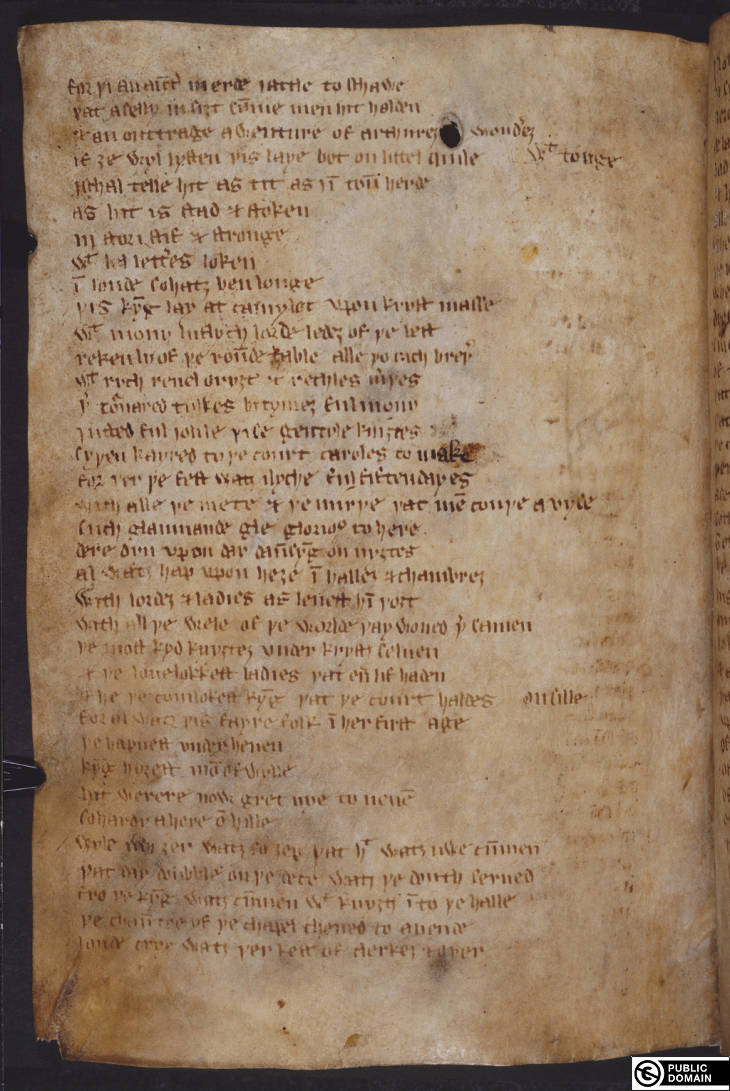 forþi an aunt̉ in erde i attle to schawe
þat a selly in siȝt sūme men hit holden
& an outtrage awenture of arthurez wond̉ez
if ȝe wyl lysten þis laye bot on littel quile wᵗ tonge
i schal telle hit as tit as i ī toū herde
as hit is stad & stoken
in stori stif & stronge
wᵗ lel lett̉es loken
ī londe so hatz ben longe
þis kȳg lay at camylot vpon krystmasse
wᵗ mony luflych lorde ledez of þe best
rekenly of þe roūde table alle þo rich breþ̉
wᵗ rych reuel oryȝt & rechles m̉þes
þ̉ tỏnayed tulkes bitymez ful mony
iusted ful iolile þise gentyle kniȝtes
syþen kayred to þe court caroles to make
for þer þe fest watz ilyche ful fiften dayes
with alle þe mete & þe mirþe þat mē couþe a vyse
such glaumande gle glorio⁹ to here
dere dyn vpon day daūsyng on nyȝtes
al watz hap vpon heȝe ī hallez & chambrez
with lordez & ladies as leuest hī þoȝt
with all þe wele of þe worlde þay woned þ̉ samen
þe most kyd knyȝtez vnder krystes seluen
& þe louelokkest ladies þat eū lif haden
& he þe comlokest kȳg þat þe court haldes on sille
for al watz þis fayre folk ī her first age
þe hapnest vnder heuen
kyng hyȝest mō of wylle
hit were now gret nye to neuē
so hardy a here ō hille
wyle nw ȝer watz so ȝep þat hit watz nwe cūmen
þat day doubble on þe dece watz þe douth serued
fro þe kȳg watz cūmen wᵗ knyȝtes ī to þe halle
þe chaūtre of þe chapel cheued to an ende
loude crye watz þer kest of clerkez & oþer
PUBLIC
DOMAIN